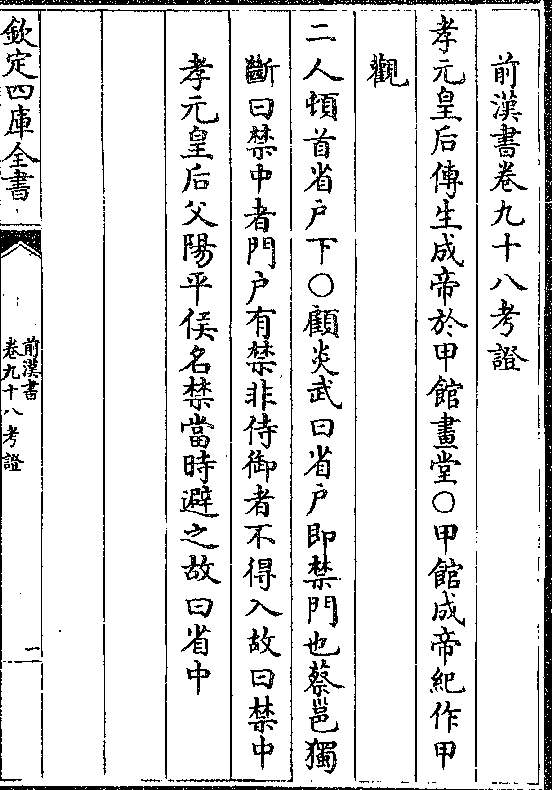 前漢書卷九十八考證
孝元皇后傳生成帝於甲館畫堂〇甲館成帝紀作甲
觀
二人頓首省户下〇顧炎武曰省户即禁門也蔡邕獨
斷曰禁中者門户有禁非侍御者不得入故曰禁中
孝元皇后父陽平侯名禁當時避之故曰省中
欽定四庫全書
前漢書
卷九十八考證
一